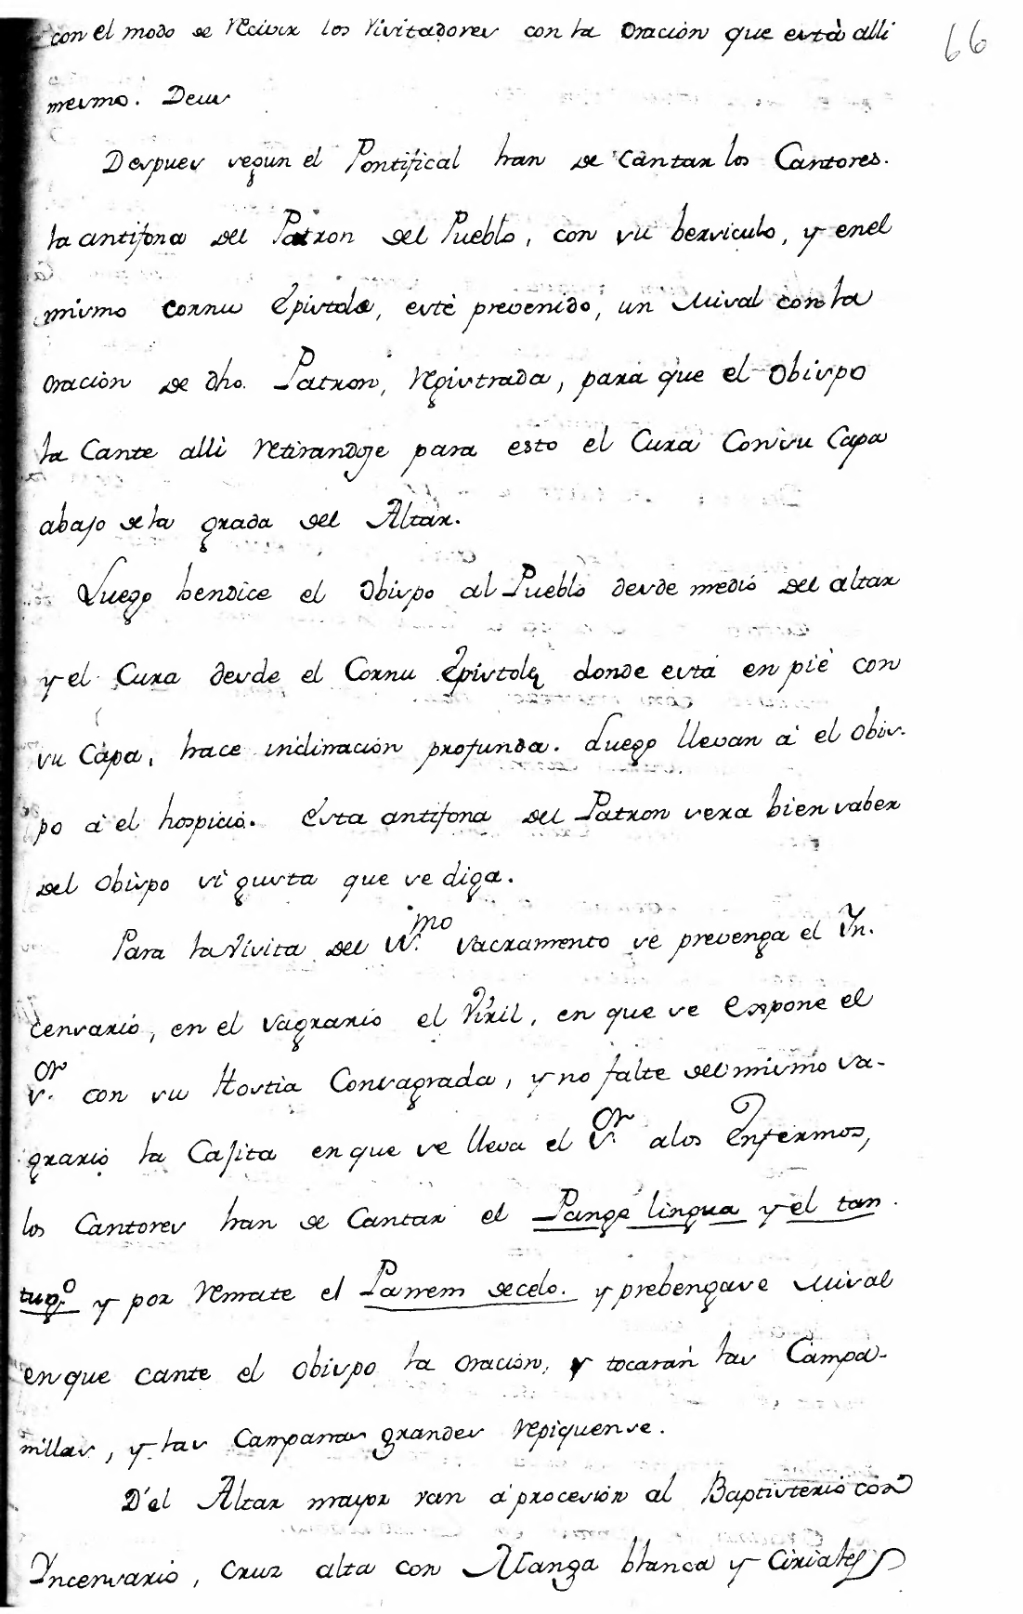 con el modo se recivir los Visitadores con la oracion que està alli
66
mesmo. Deus
Despues segun el Pontifical han de cantar los Cantores.
la antifona del Patron del Pueblo, con su bersiculo, y enel
mismo cornu Epistola, estè prevenido, un Misal con la
oracion de dho. Patron, registrada, para que el obispo
la Cante alli retirandose para esto el Cura Con su Capa
abajo de la grada del Altar.
Luego bendice el obispo al Pueblo desde medio del altar
y el Cura desde el Cornu Epistolę donde está en piè con
su Capa, hace inclinacion profunda. Luego llevan á el obis-
po á el hospicio. Esta antifona del Patron sera bien saber
del obispo si gusta que se diga.
Para la Visita del SS.mo Sacramento se prevenga el In-
censario, en el sagrario el Viril, en que se Expone el
S.or con su Hostia Consagrada, y no falte del mismo sa-
grario la Cajita en que se lleva el S.or a los Enfermos,
los Cantores han de Cantar el Pange lingua y el tan
tug.o y por remate el Panem de celo. y prebengase Misal
en que cante el obispo la oracion, y tocarán las Campa-
nillas, y las Campanas grandes repiquense.
D'el Altar mayor van á procesion al Baptisterio con
Yncensario, Cruz alta con Manga blanca y Ciriales